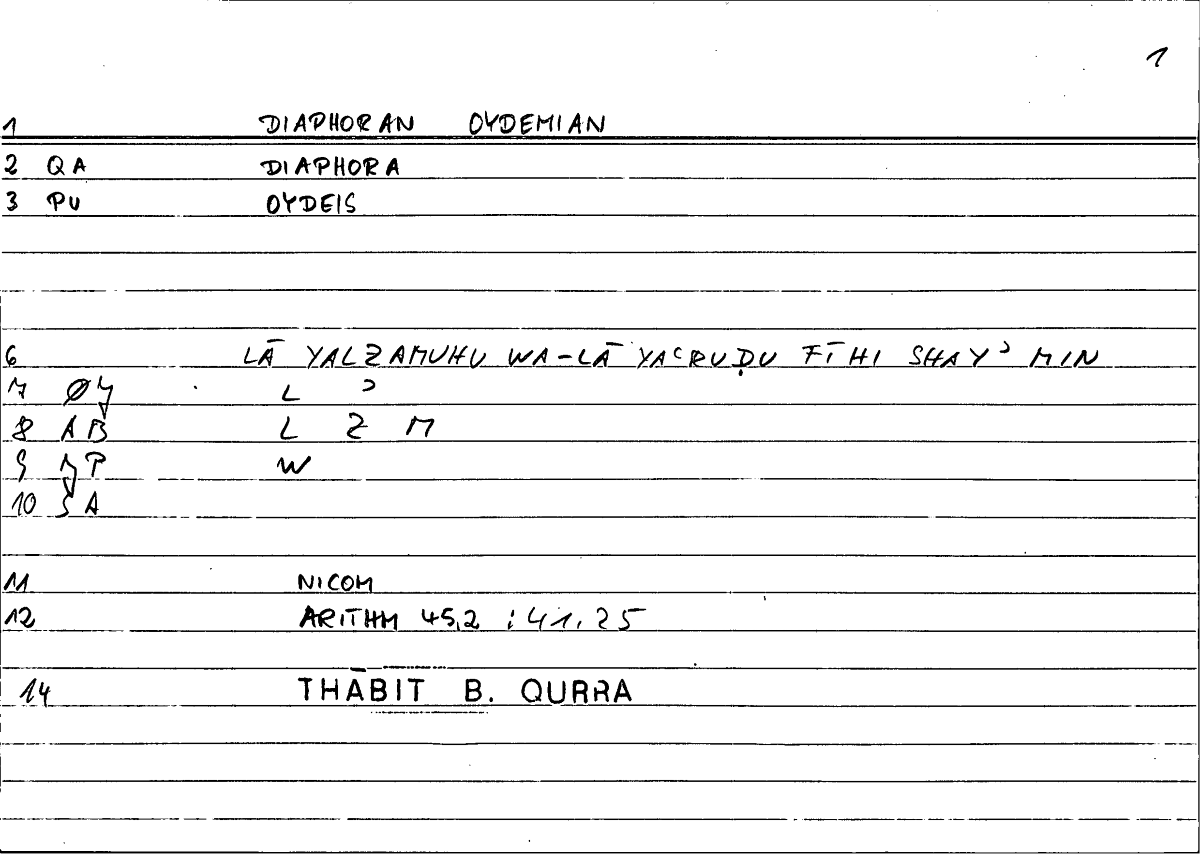 1
1 DIAPHORAN OYDEMIAN
2 QA DIAPHORA
3 PU OYDEIS
6 LĀ YALZAMUHU WA-LĀ YAʿRUḌU FĪHI SHAYʾ MIN
7 L ʾ
8 AB L Z M
9 W
10 A
11 NICOM
12 ARITHM 45,2 : 41,25
14 THĀBIT B. QURRA